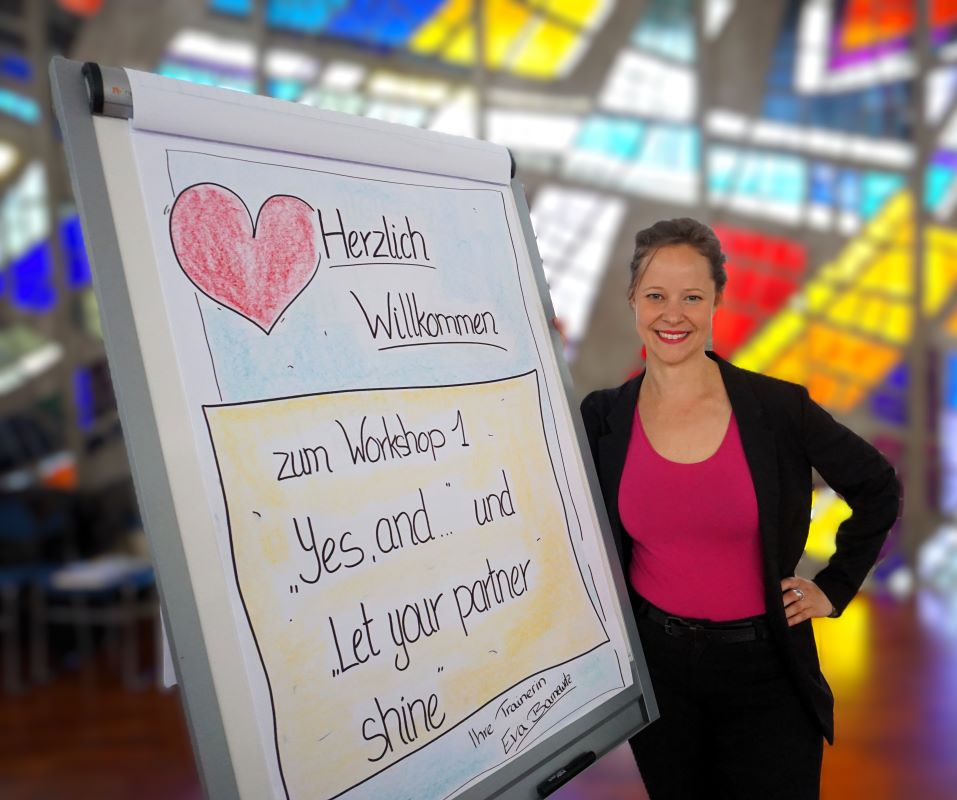 Herzlich
Willkommen
zum Workshop 1
„Yes, and..." und
„Let your partner
shine"
Ihre Trainerin
Eva